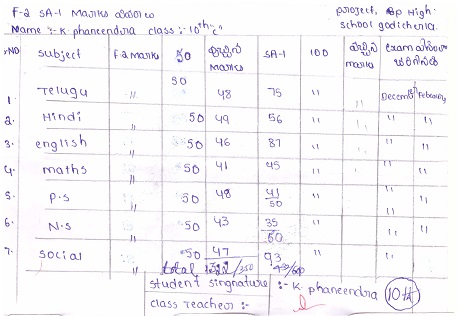 F-2 SA-1 Marks వివరాలు project, Zp High:
Name :- K. phaneendra class :- 10th "c" school godicherla.
S.NO subject F-2 marks 50 వచ్చిన Marks SA-1 100 వచ్చిన marks exam వివరాలు జరిగినది
1. Telugu " 50 48 75 " " December February
2. Hindi " 50 49 56 " " " "
3. english " 50 46 87 " " " "
4. maths " 50 41 45 " " " "
5. p.s " 50 48 41/50 " " " "
6. N.S " 50 43 35/50 " " " "
7. social " 50 47 93 " " " "
total /350 /600
student singnature :- K. phaneendra 10th
class teacher :-